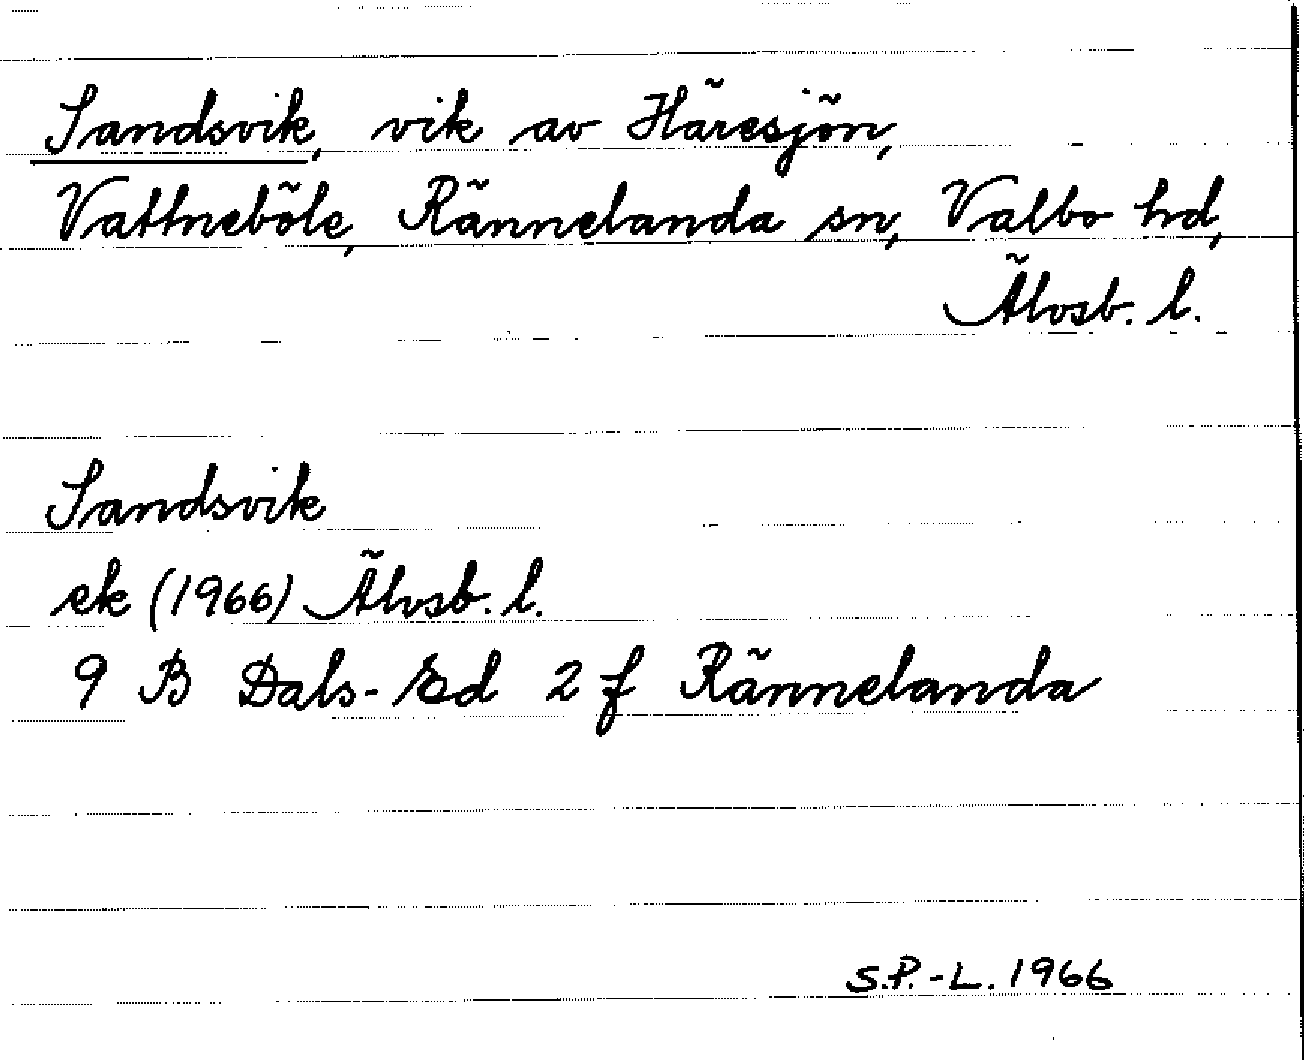 Sandsvik, vik av Häresjön,
Vattneböle, Rännelanda sn, Valbo hd,
Älvsb. l.
Sandsvik
ek (1966) Älvsb. l.
9 B Dals-Ed 2 f Rännelanda
S.P.-L. 1966